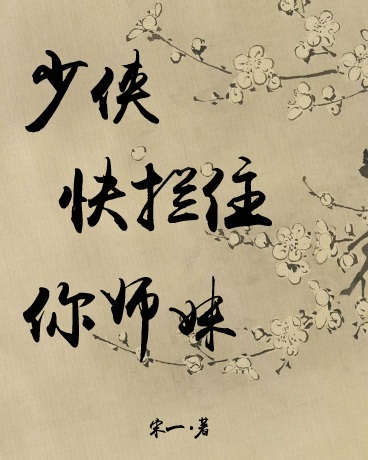 少侠
快拦住
你师妹
宋一·著